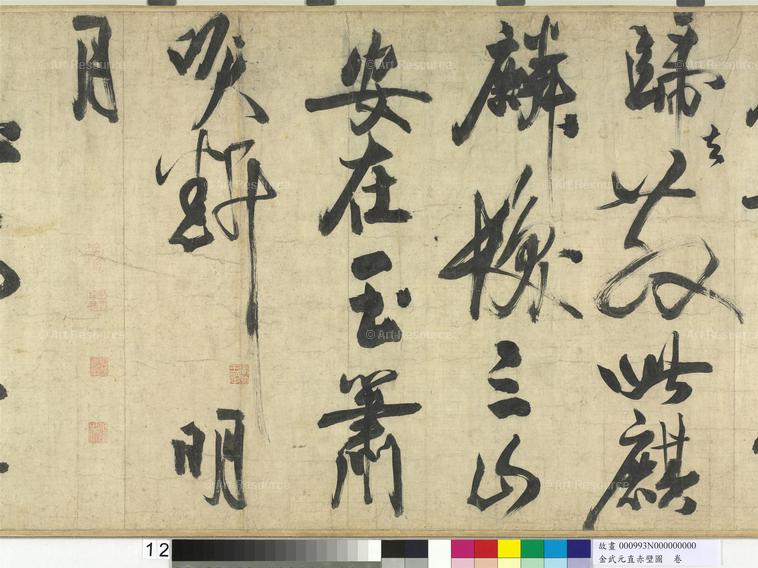 歸去散此麒
麟髮三山
安在玉簫
吹斷明
月
12
故畫 000993N000000000
金武元直赤壁圖 卷
© Art Resource